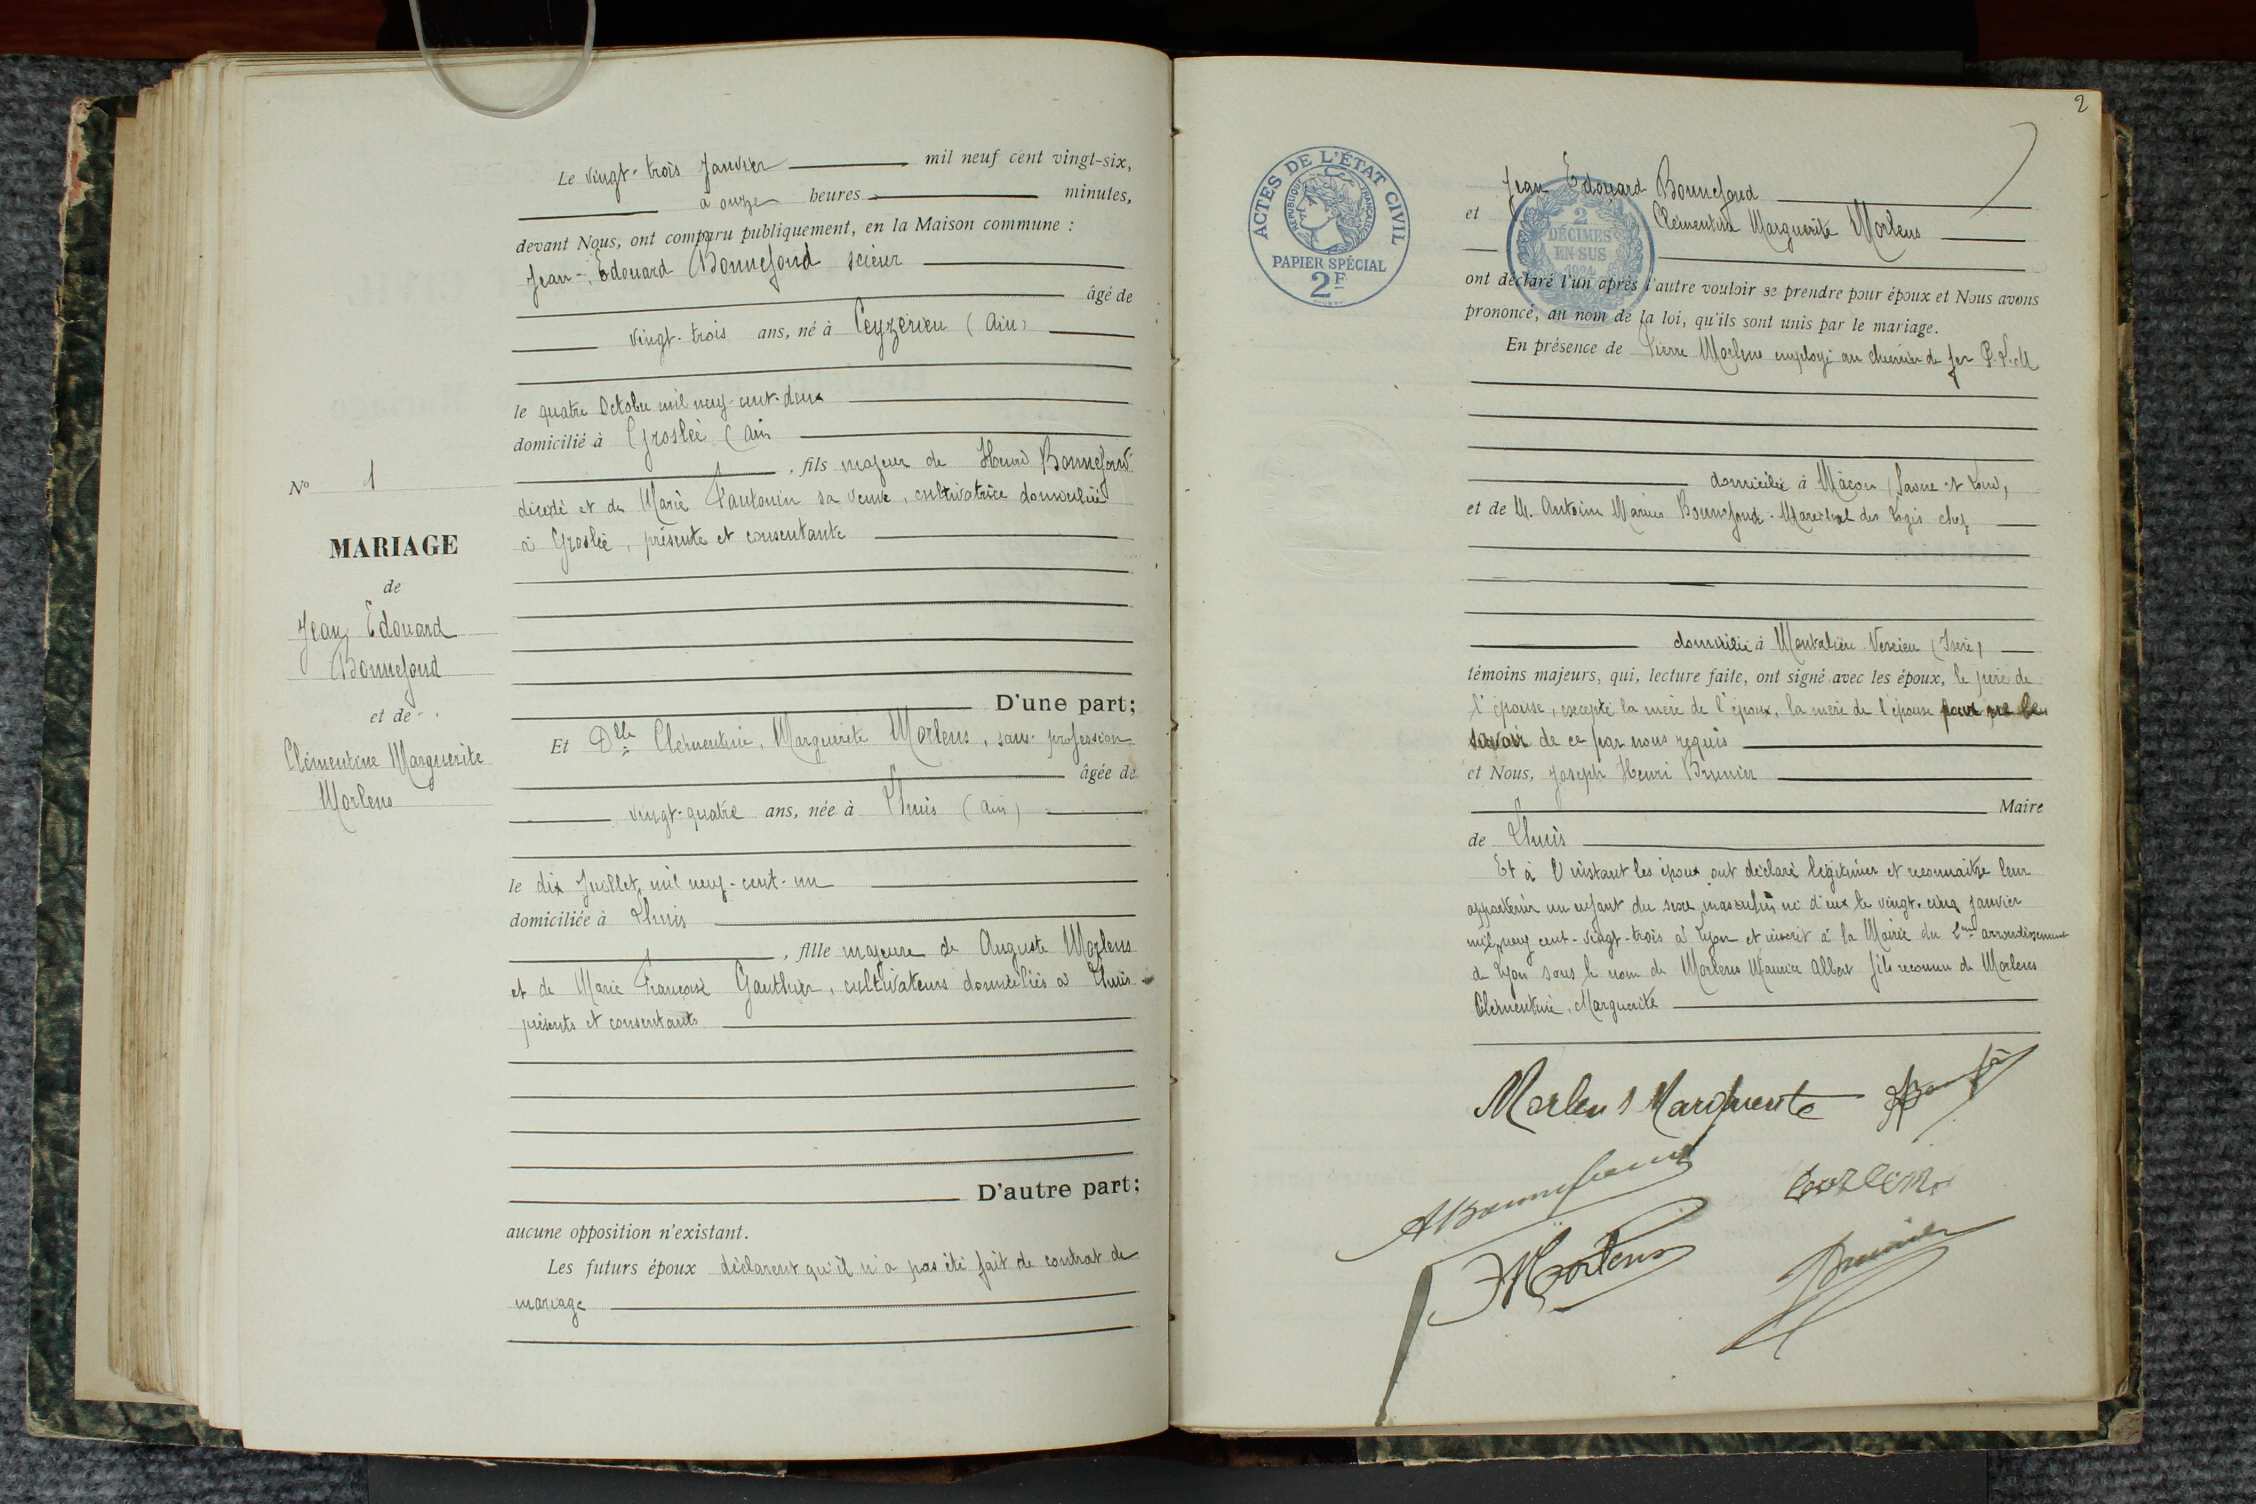 Le vingt-trois Janvier mil neuf cent vingt-six,
à onze heures minutes,
devant Nous, ont comparu publiquement, en la Maison commune :
Jean-Edouard Bonnefond scieur
âgé de
vingt-trois ans, né à Ceyzérieu (Ain)
le quatre Octobre mil neuf-cent-deux
domicilié à Groslée (Ain
, fils majeur de Henri Bonnefond
décédé et de Marie Fantonin sa veuve, cultivatrice domiciliée
à Groslée, présente et consentante
No 1
MARIAGE
de
Jean Edouard
Bonnefond
et de
Clémentine Marguerite
Morlens
D'une part;
Et Dlle Clémentine, Marguerite Morlens, sans profession
âgée de
vingt-quatre ans, née à Lhuis (Ain)
le dix Juillet mil neuf-cent-un
domiciliée à Lhuis
, fille majeure de Auguste Morlens
et de Marie Françoise Gauthier, cultivateurs domiciliés à Lhuis
présents et consentants
D'autre part;
aucune opposition n'existant.
Les futurs époux déclarent qu'il n'a pas été fait de contrat de
mariage
2
ACTES DE L'ÉTAT CIVIL
RÉPUBLIQUE FRANÇAISE
PAPIER SPÉCIAL
2F
2
DÉCIMES
EN SUS
1924
Jean Edouard Bonnefond
et Clémentine Marguerite Morlens
ont déclaré l'un après l'autre vouloir se prendre pour époux et Nous avons
prononcé, au nom de la loi, qu'ils sont unis par le mariage.
En présence de Pierre Morlens employé au chemin de fer P.L.M
domicilié à Mâcon (Saone et Loire),
et de M. Antoine Marius Bonnefond. Maréchal des logis chef
domicilié à Montalieu Vercieu (Isère)
témoins majeurs, qui, lecture faite, ont signé avec les époux, le père de
l'épouse, excepté la mère de l'époux, la mère de l'épouse pour ne le
savoir de ce par nous requis
et Nous, Joseph Henri Brunier
Maire
de Lhuis
Et à l'instant les époux ont déclaré légitimer et reconnaitre leur
appartenir un enfant du sexe masculin né d'eux le vingt-cinq janvier
mil neuf cent-vingt-trois à Lyon et inscrit à la Mairie du 2me arrondissement
de Lyon sous le nom de Morlens Maurice Albert fils reconnu de Morlens
Clémentine, Marguerite
Morlens Marguerite
A Bonnefond
Morlens
Morlens
Brunier